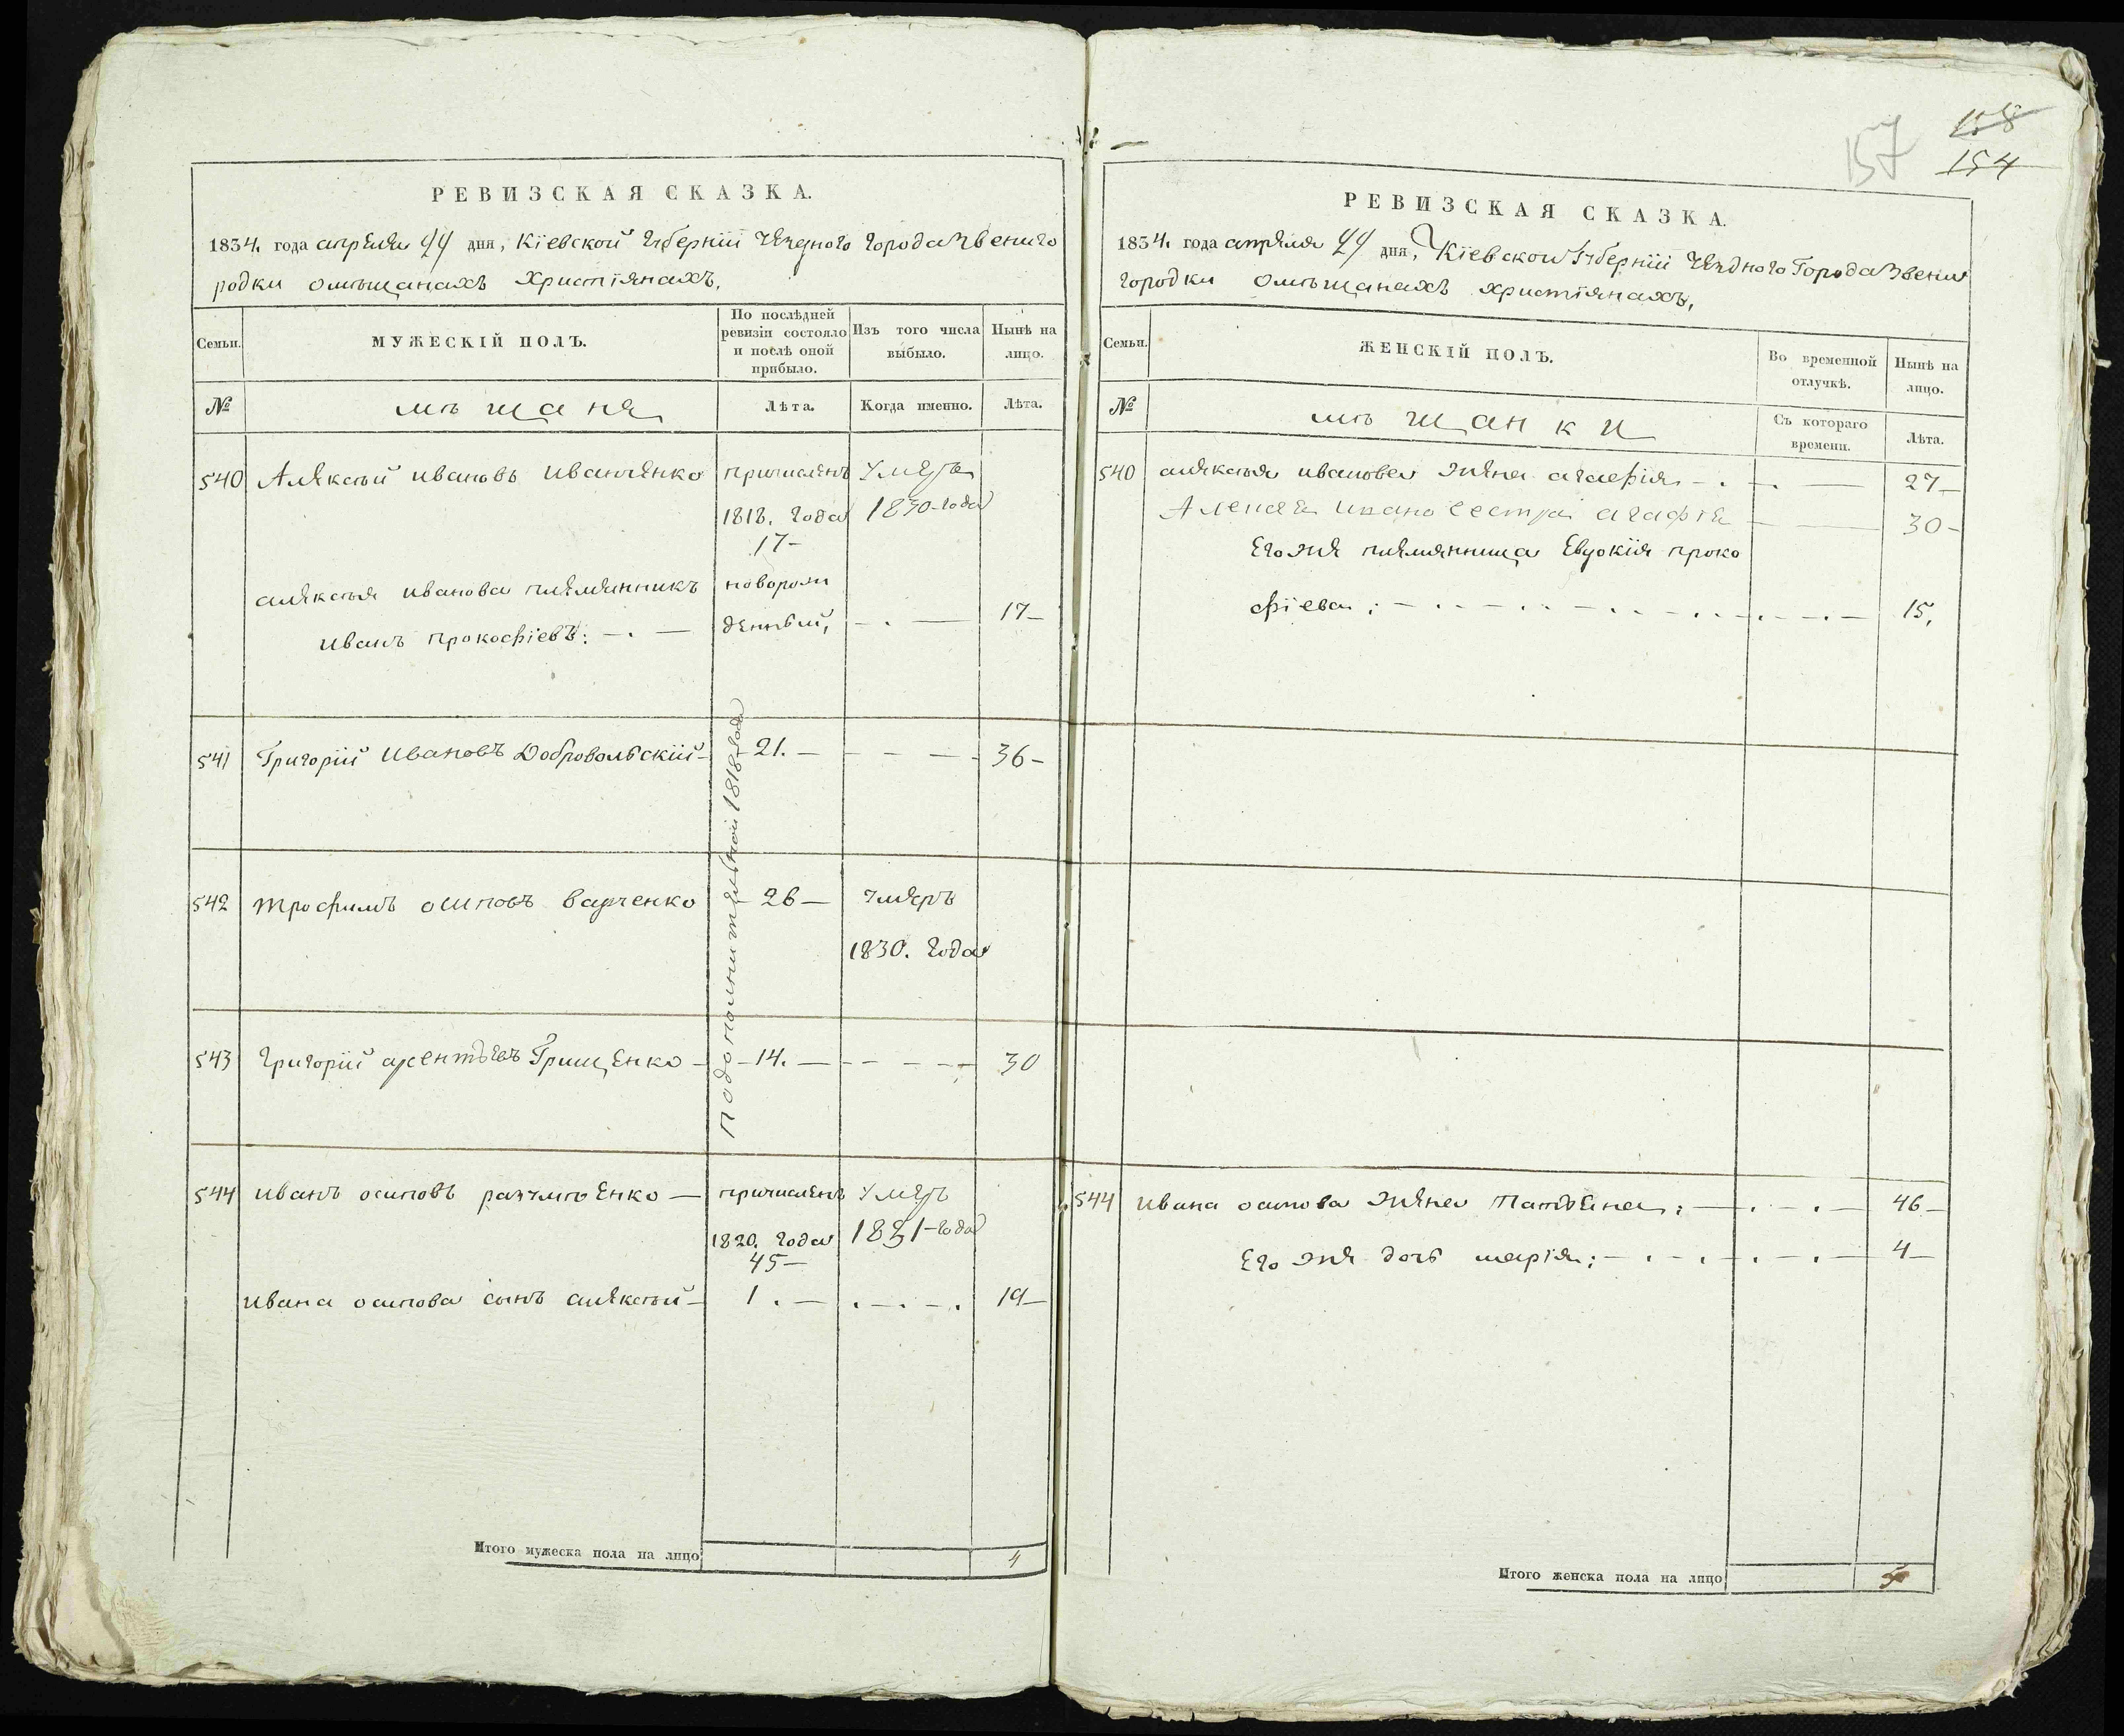 158
157
154
РЕВИЗСКАЯ СКАЗКА.
1834. года апреля 24 дня, Кіевской Губерніи Уезднаго Города Звениго
родки омѣщанахъ Христіянахъ,
Семьи.
МУЖЕСКІЙ ПОЛЪ.
По послѣдней ревизіи состояло и послѣ оной прибыло.
Изъ того числа выбыло.
Нынѣ на лицо.
№
мѣщане
Лѣта.
Когда именно.
Лѣта.
540 Алексѣй ивановъ иванченко причисленъ умеръ
1818. года 1830 года
17-
алексѣя иванова племянникъ новорож
иванъ прокофіевъ: денный, 17-
По дополнительной 1818 года
541 Григорій ивановъ Добровольскій 21. 36-
542 трофимъ осиповъ варченко 26 умеръ
1830. года
543 григорій арентьевъ Грищенко 14. 30
544 иванъ осиповъ разумѣенко причисленъ умеръ
1820. года 1831 года
45-
ивана осипова сынъ алексѣй 1. 19-
Итого мужеска пола на лицо 4
РЕВИЗСКАЯ СКАЗКА.
1834. года апреля 24 дня, Кіевской Губерніи Уезднаго Города Звени
городки омѣщанахъ христіянахъ,
Семьи.
ЖЕНСКІЙ ПОЛЪ.
Во временной отлучкѣ.
Нынѣ на лицо.
№
мѣщанки
Съ котораго времени.
Лѣта.
540 алексѣя иванова жена агафія 27-
сестра агафія 30-
его же племянница Евдокія проко
фіева: 15,
544 ивана осипова жена Татьяна: 46-
его же дочь марія: 4-
Итого женска пола на лицо 5